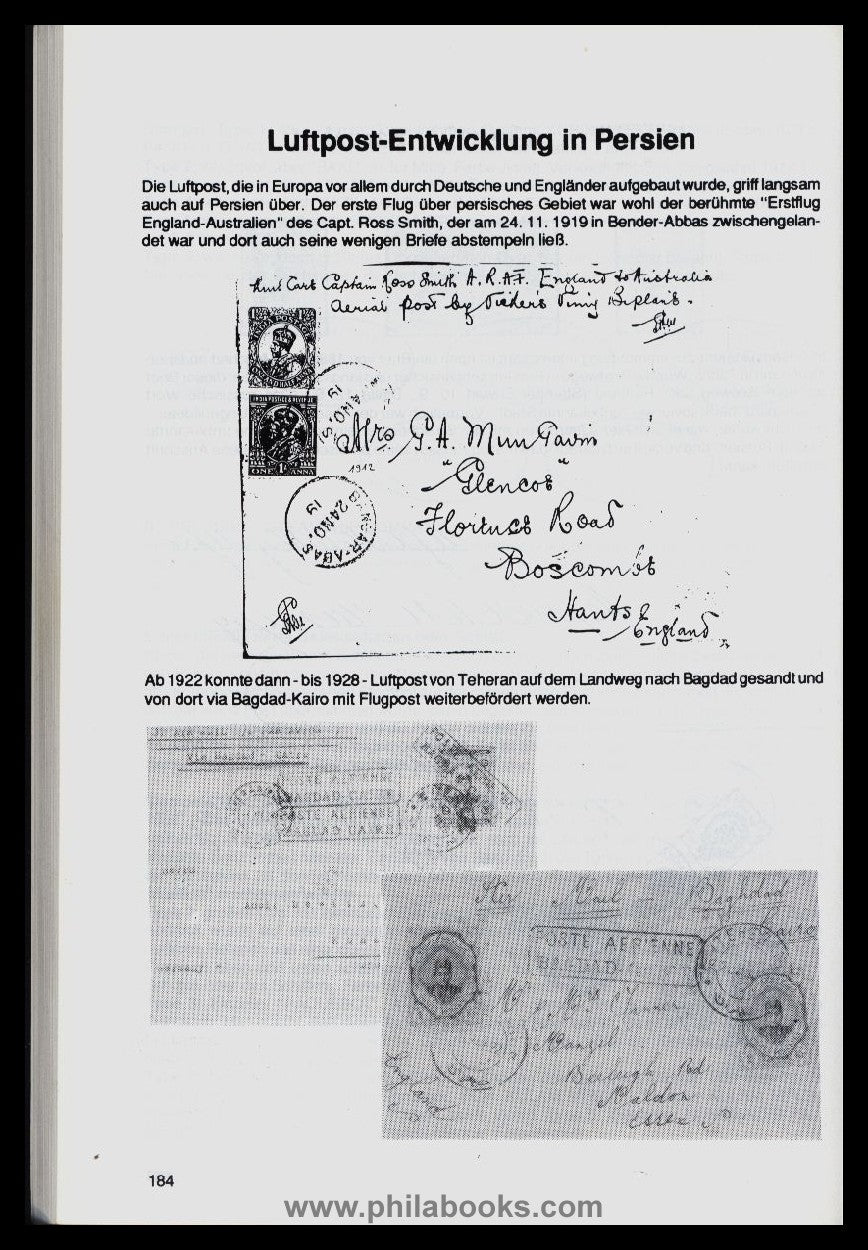 Luftpost-Entwicklung in Persien
Die Luftpost, die in Europa vor allem durch Deutsche und Engländer aufgebaut wurde, griff langsam
auch auf Persien über. Der erste Flug über persisches Gebiet war wohl der berühmte "Erstflug
England-Australien" des Capt. Ross Smith, der am 24. 11. 1919 in Bender-Abbas zwischengelan-
det war und dort auch seine wenigen Briefe abstempeln ließ.
Captain Ross Smith A.R.A.F. England to Australia
aerial post by
INDIA POSTAGE
INDIA POSTAGE & REVENUE
ONE 1A ANNA
Mrs G.A.
1912
"Glencoe"
24 NO. 19
BANDAR-ABAS
Florence Road
Boscombe
Hants
England
Ab 1922 konnte dann - bis 1928 - Luftpost von Teheran auf dem Landweg nach Bagdad gesandt und
von dort via Bagdad-Kairo mit Flugpost weiterbefördert werden.
POSTE AERIENNE
BAGDAD-CAIRE
POSTE AERIENNE
BAGDAD CAIRE
Air Mail - Baghdad
Cairo
POSTE AERIENNE
BAGDAD
Mrs
Rd
Maldon
Essex
England
184
www.philabooks.com